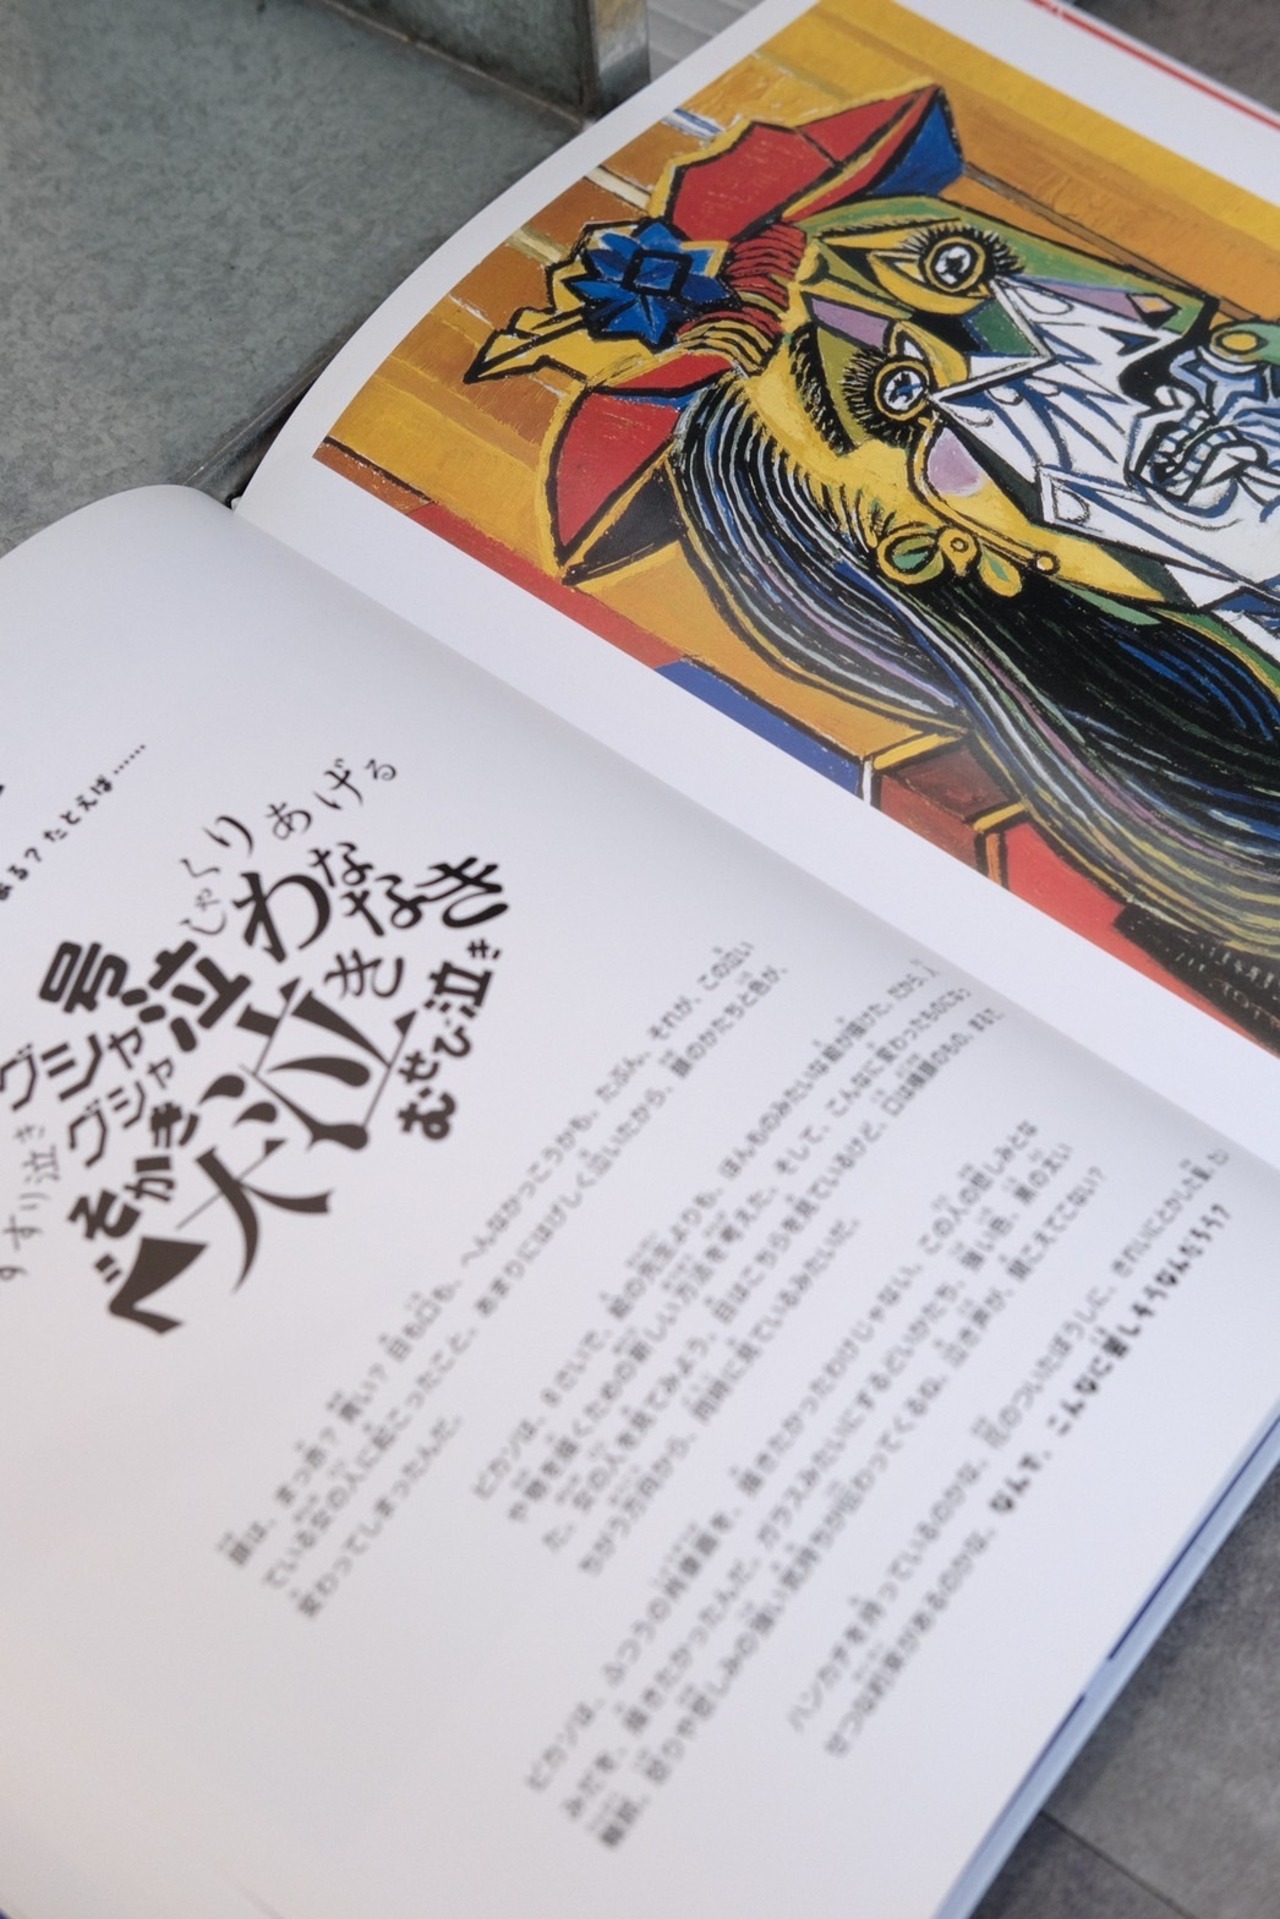 ある?たとえば……
しゃくりあげる
わななき
号泣
泣き
グシャグシャ
むせび泣き
すすり泣き
べそかき
大泣
顔は、まっ赤?青い?目も口も、へんなかっこうかも。たぶん、それが、この泣い
ている女の人に起こったこと。あまりにはげしく泣いたから、顔のかたちと色が、
変わってしまったんだ。
ピカソは、8さいで、絵の先生よりも、ほんものみたいな絵が描けた。だから、人
や物を描くための新しい方法を考えた。そして、こんなに変わったものになっ
た。女の人を見てみよう。目はこちらを見ているけど、口は横顔のもの。まるで、
ちがう方向から、同時に見ているみたいだ。
ピカソは、ふつうの肖像画を、描きたかったわけじゃない。この人の悲しみとな
みだを、描きたかったんだ。ガラスみたいにするどいかたち、強い色、黒の太い
輪郭。怒りや悲しみの強い気持ちが伝わってくるね。泣き声が、聞こえてこない?
ハンカチを持っているのかな。花のついたぼうしに、きれいにとかした
せつな約束があるのかな。なんで、こんなに悲しそうなんだろう?